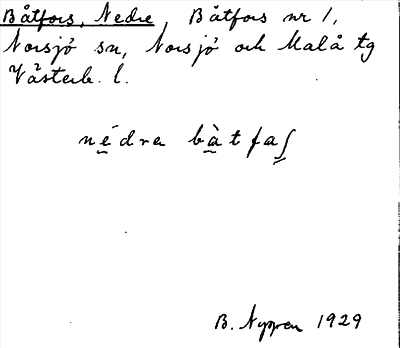 Båtfors, Nedre Båtfors nr 1,
Norsjö sn, Norsjö och Malå tg
Västerb. l.
nédra bàtfaʃ
B. 1929